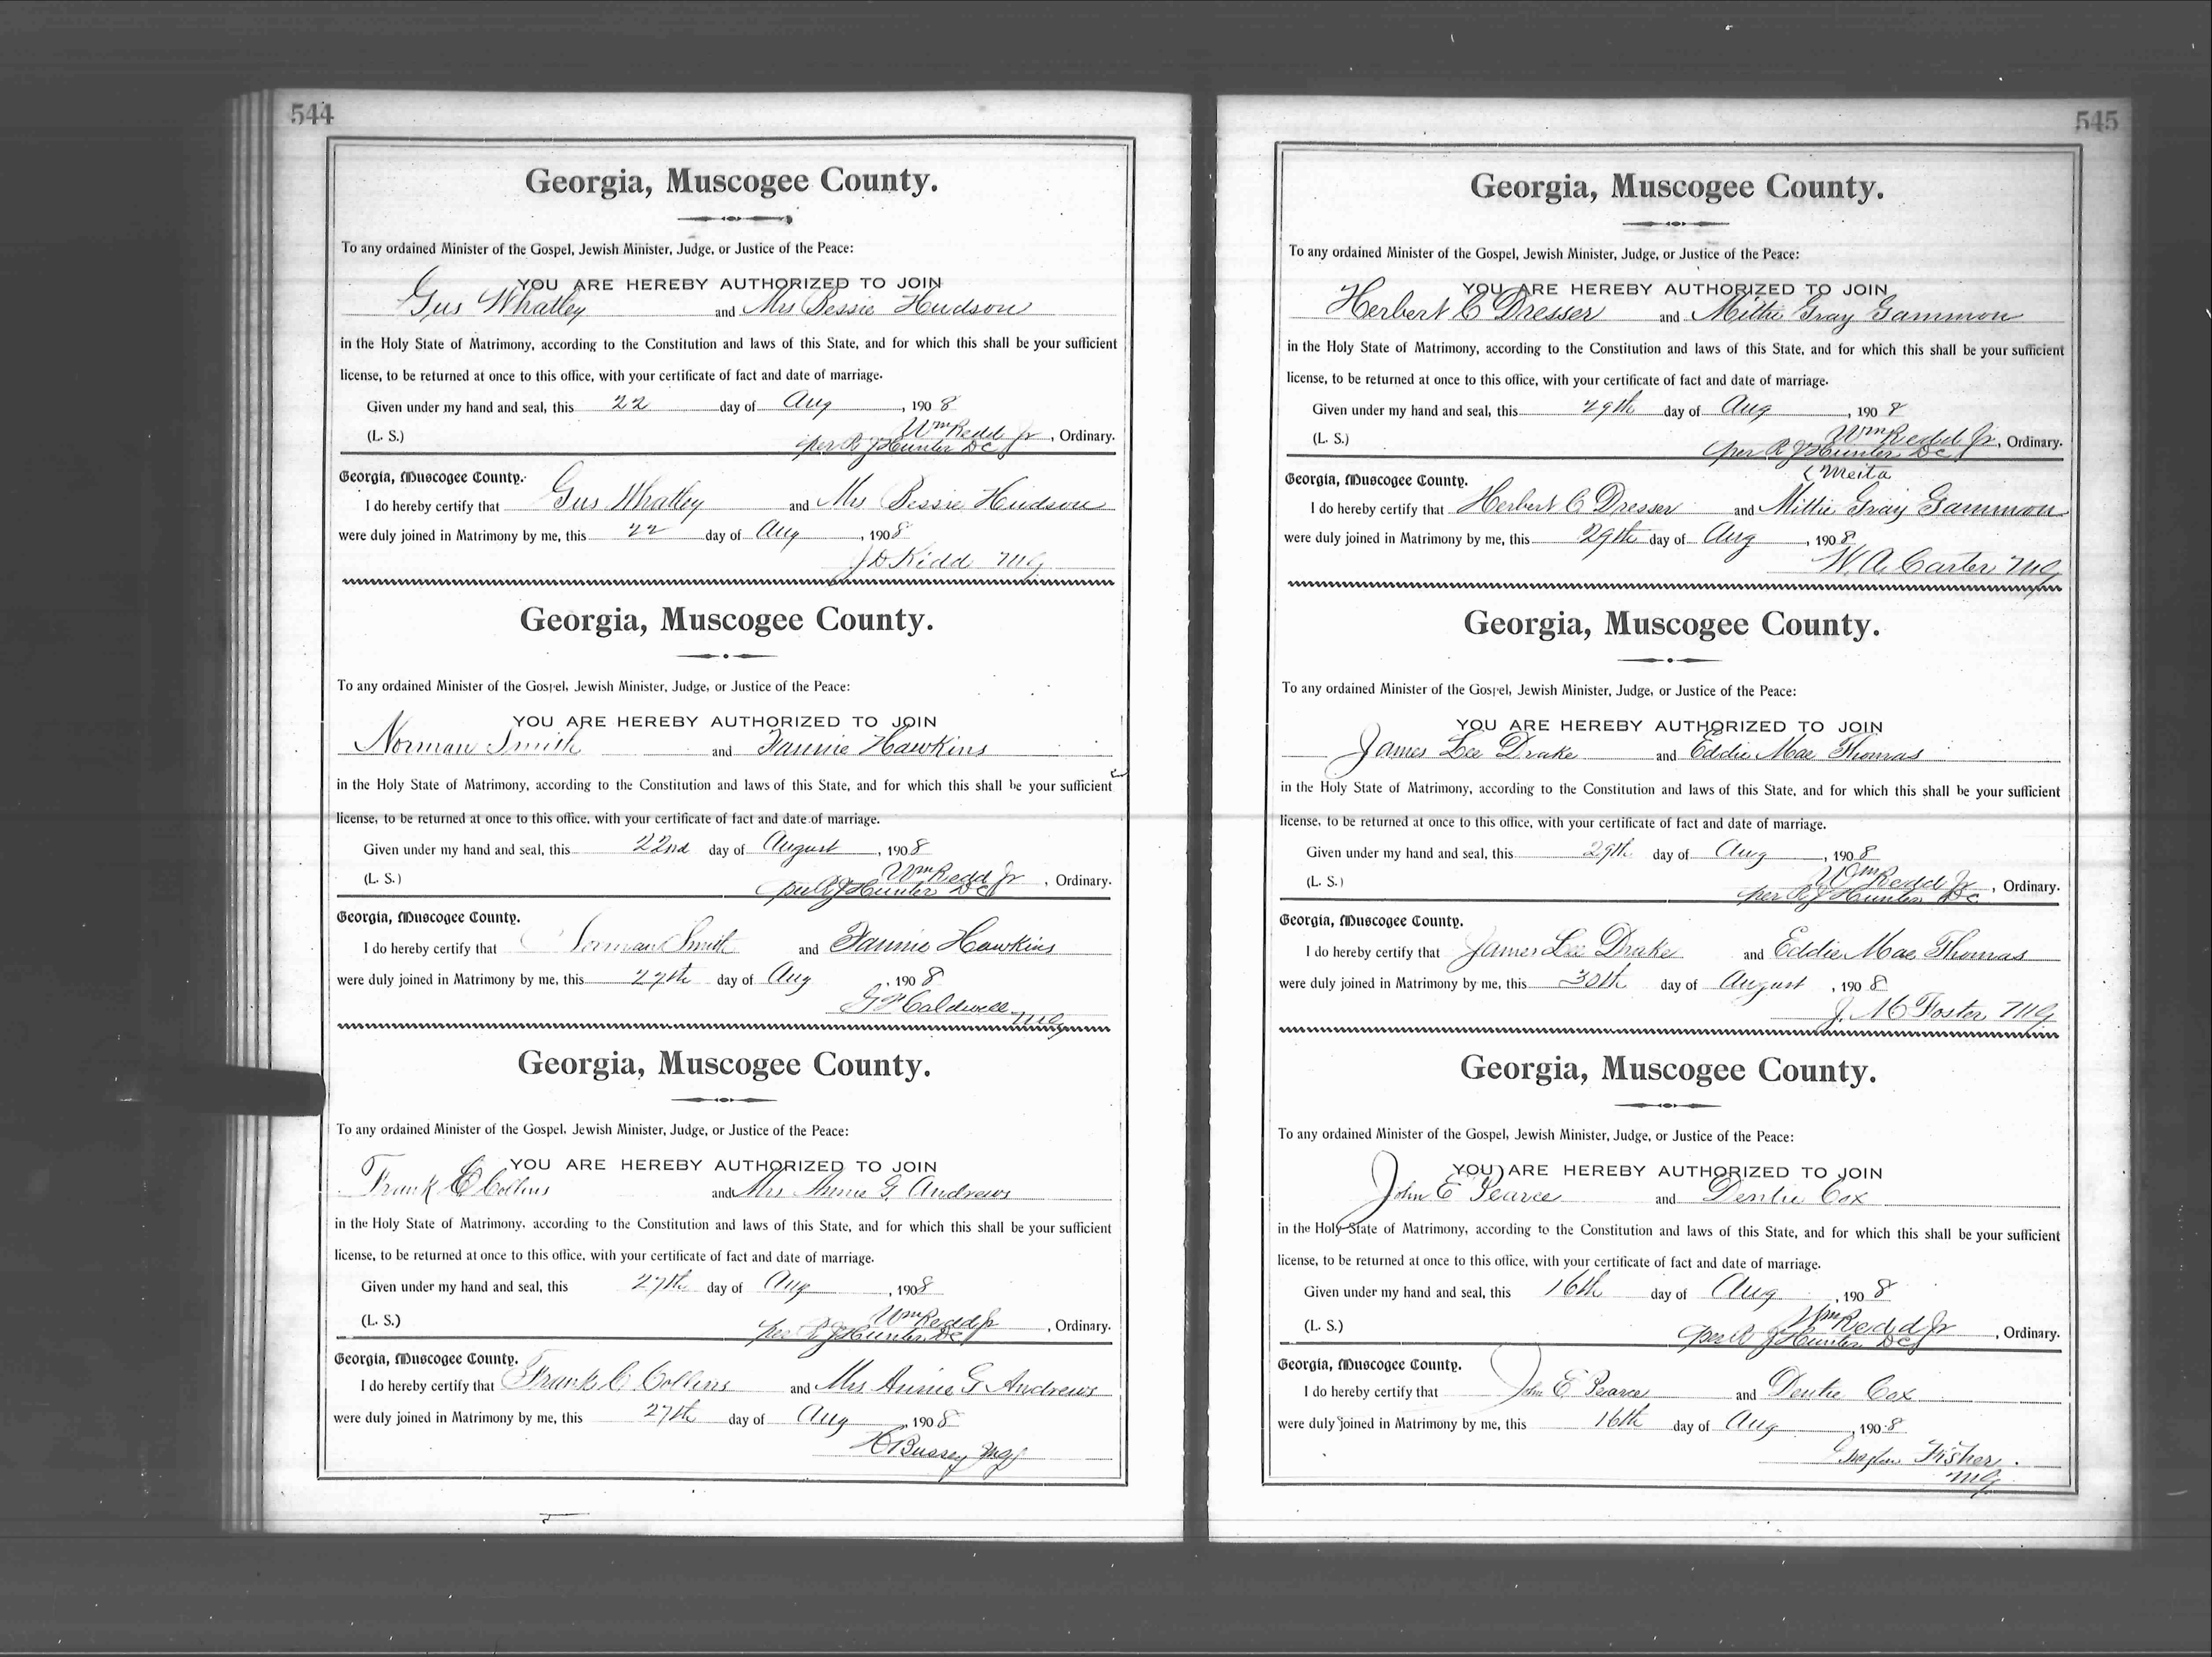 544
Georgia, Muscogee County.
To any ordained Minister of the Gospel, Jewish Minister, Judge, or Justice of the Peace:
YOU ARE HEREBY AUTHORIZED TO JOIN
Gus Whatley and Mrs Bessie Hudson
in the Holy State of Matrimony, according to the Constitution and laws of this State, and for which this shall be your sufficient
license, to be returned at once to this office, with your certificate of fact and date of marriage.
Given under my hand and seal, this 22 day of Aug, 1908
(L. S.) Wm Redd Jr, Ordinary.
per R J Hunter DC
Georgia, Muscogee County.
I do hereby certify that Gus Whatley and Mrs Bessie Hudson
were duly joined in Matrimony by me, this 22 day of Aug, 1908
J D Kidd MG
Georgia, Muscogee County.
To any ordained Minister of the Gospel, Jewish Minister, Judge, or Justice of the Peace:
YOU ARE HEREBY AUTHORIZED TO JOIN
Norman Smith and Fannie Hawkins
in the Holy State of Matrimony, according to the Constitution and laws of this State, and for which this shall be your sufficient
license, to be returned at once to this office, with your certificate of fact and date of marriage.
Given under my hand and seal, this 22nd day of August, 1908
(L. S.) Wm Redd Jr, Ordinary.
per R J Hunter DC
Georgia, Muscogee County.
I do hereby certify that Norman Smith and Fannie Hawkins
were duly joined in Matrimony by me, this 27th day of Aug, 1908
Caldwell MG
Georgia, Muscogee County.
To any ordained Minister of the Gospel, Jewish Minister, Judge, or Justice of the Peace:
YOU ARE HEREBY AUTHORIZED TO JOIN
Frank C Collins and Mrs Annie G. Andrews
in the Holy State of Matrimony, according to the Constitution and laws of this State, and for which this shall be your sufficient
license, to be returned at once to this office, with your certificate of fact and date of marriage.
Given under my hand and seal, this 27th day of Aug, 1908
(L. S.) Wm Redd Jr, Ordinary.
per R J Hunter DC
Georgia, Muscogee County.
I do hereby certify that Frank C Collins and Mrs Annie G Andrews
were duly joined in Matrimony by me, this 27th day of Aug, 1908
Bussey MG
545
Georgia, Muscogee County.
To any ordained Minister of the Gospel, Jewish Minister, Judge, or Justice of the Peace:
YOU ARE HEREBY AUTHORIZED TO JOIN
Herbert C Dresser and Millie Gray Gammon
in the Holy State of Matrimony, according to the Constitution and laws of this State, and for which this shall be your sufficient
license, to be returned at once to this office, with your certificate of fact and date of marriage.
Given under my hand and seal, this 29th day of Aug, 1908
(L. S.) Wm Redd Jr, Ordinary.
per R J Hunter DC
(Meita
Georgia, Muscogee County.
I do hereby certify that Herbert C Dresser and Millie Gray Gammon
were duly joined in Matrimony by me, this 29th day of Aug, 1908
W. A. Carter MG
Georgia, Muscogee County.
To any ordained Minister of the Gospel, Jewish Minister, Judge, or Justice of the Peace:
YOU ARE HEREBY AUTHORIZED TO JOIN
James Lee Drake and Eddie Mae Thomas
in the Holy State of Matrimony, according to the Constitution and laws of this State, and for which this shall be your sufficient
license, to be returned at once to this office, with your certificate of fact and date of marriage.
Given under my hand and seal, this 29th day of Aug, 1908
(L. S.) Wm Redd Jr, Ordinary.
per R J Hunter DC
Georgia, Muscogee County.
I do hereby certify that James Lee Drake and Eddie Mae Thomas
were duly joined in Matrimony by me, this 30th day of August, 1908
J. M Foster MG
Georgia, Muscogee County.
To any ordained Minister of the Gospel, Jewish Minister, Judge, or Justice of the Peace:
YOU ARE HEREBY AUTHORIZED TO JOIN
John E Pearce and Dentie Cox
in the Holy State of Matrimony, according to the Constitution and laws of this State, and for which this shall be your sufficient
license, to be returned at once to this office, with your certificate of fact and date of marriage.
Given under my hand and seal, this 16th day of Aug, 1908
(L. S.) Wm Redd Jr, Ordinary.
per R J Hunter DC
Georgia, Muscogee County.
I do hereby certify that John E Pearce and Dentie Cox
were duly joined in Matrimony by me, this 16th day of Aug, 1908
Fisher
MG